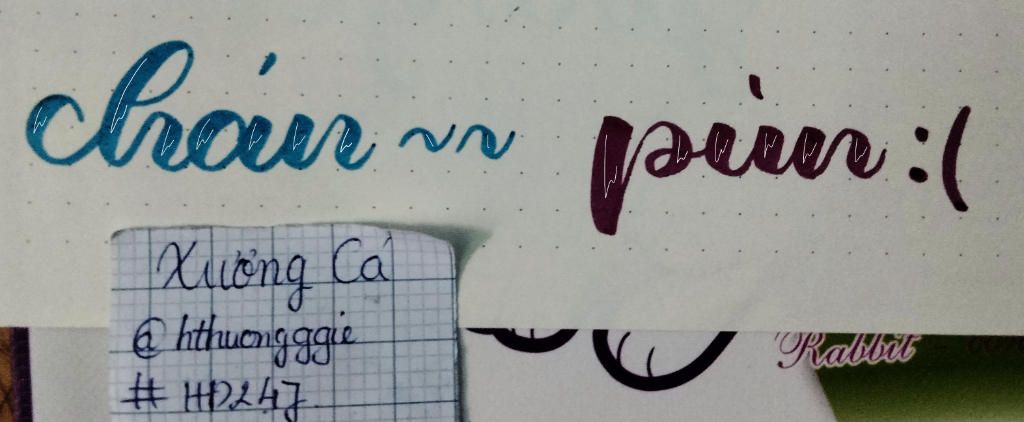 chán ~~ pin :(
Xương Cá
@hthuongggie
# HD247
Rabbit